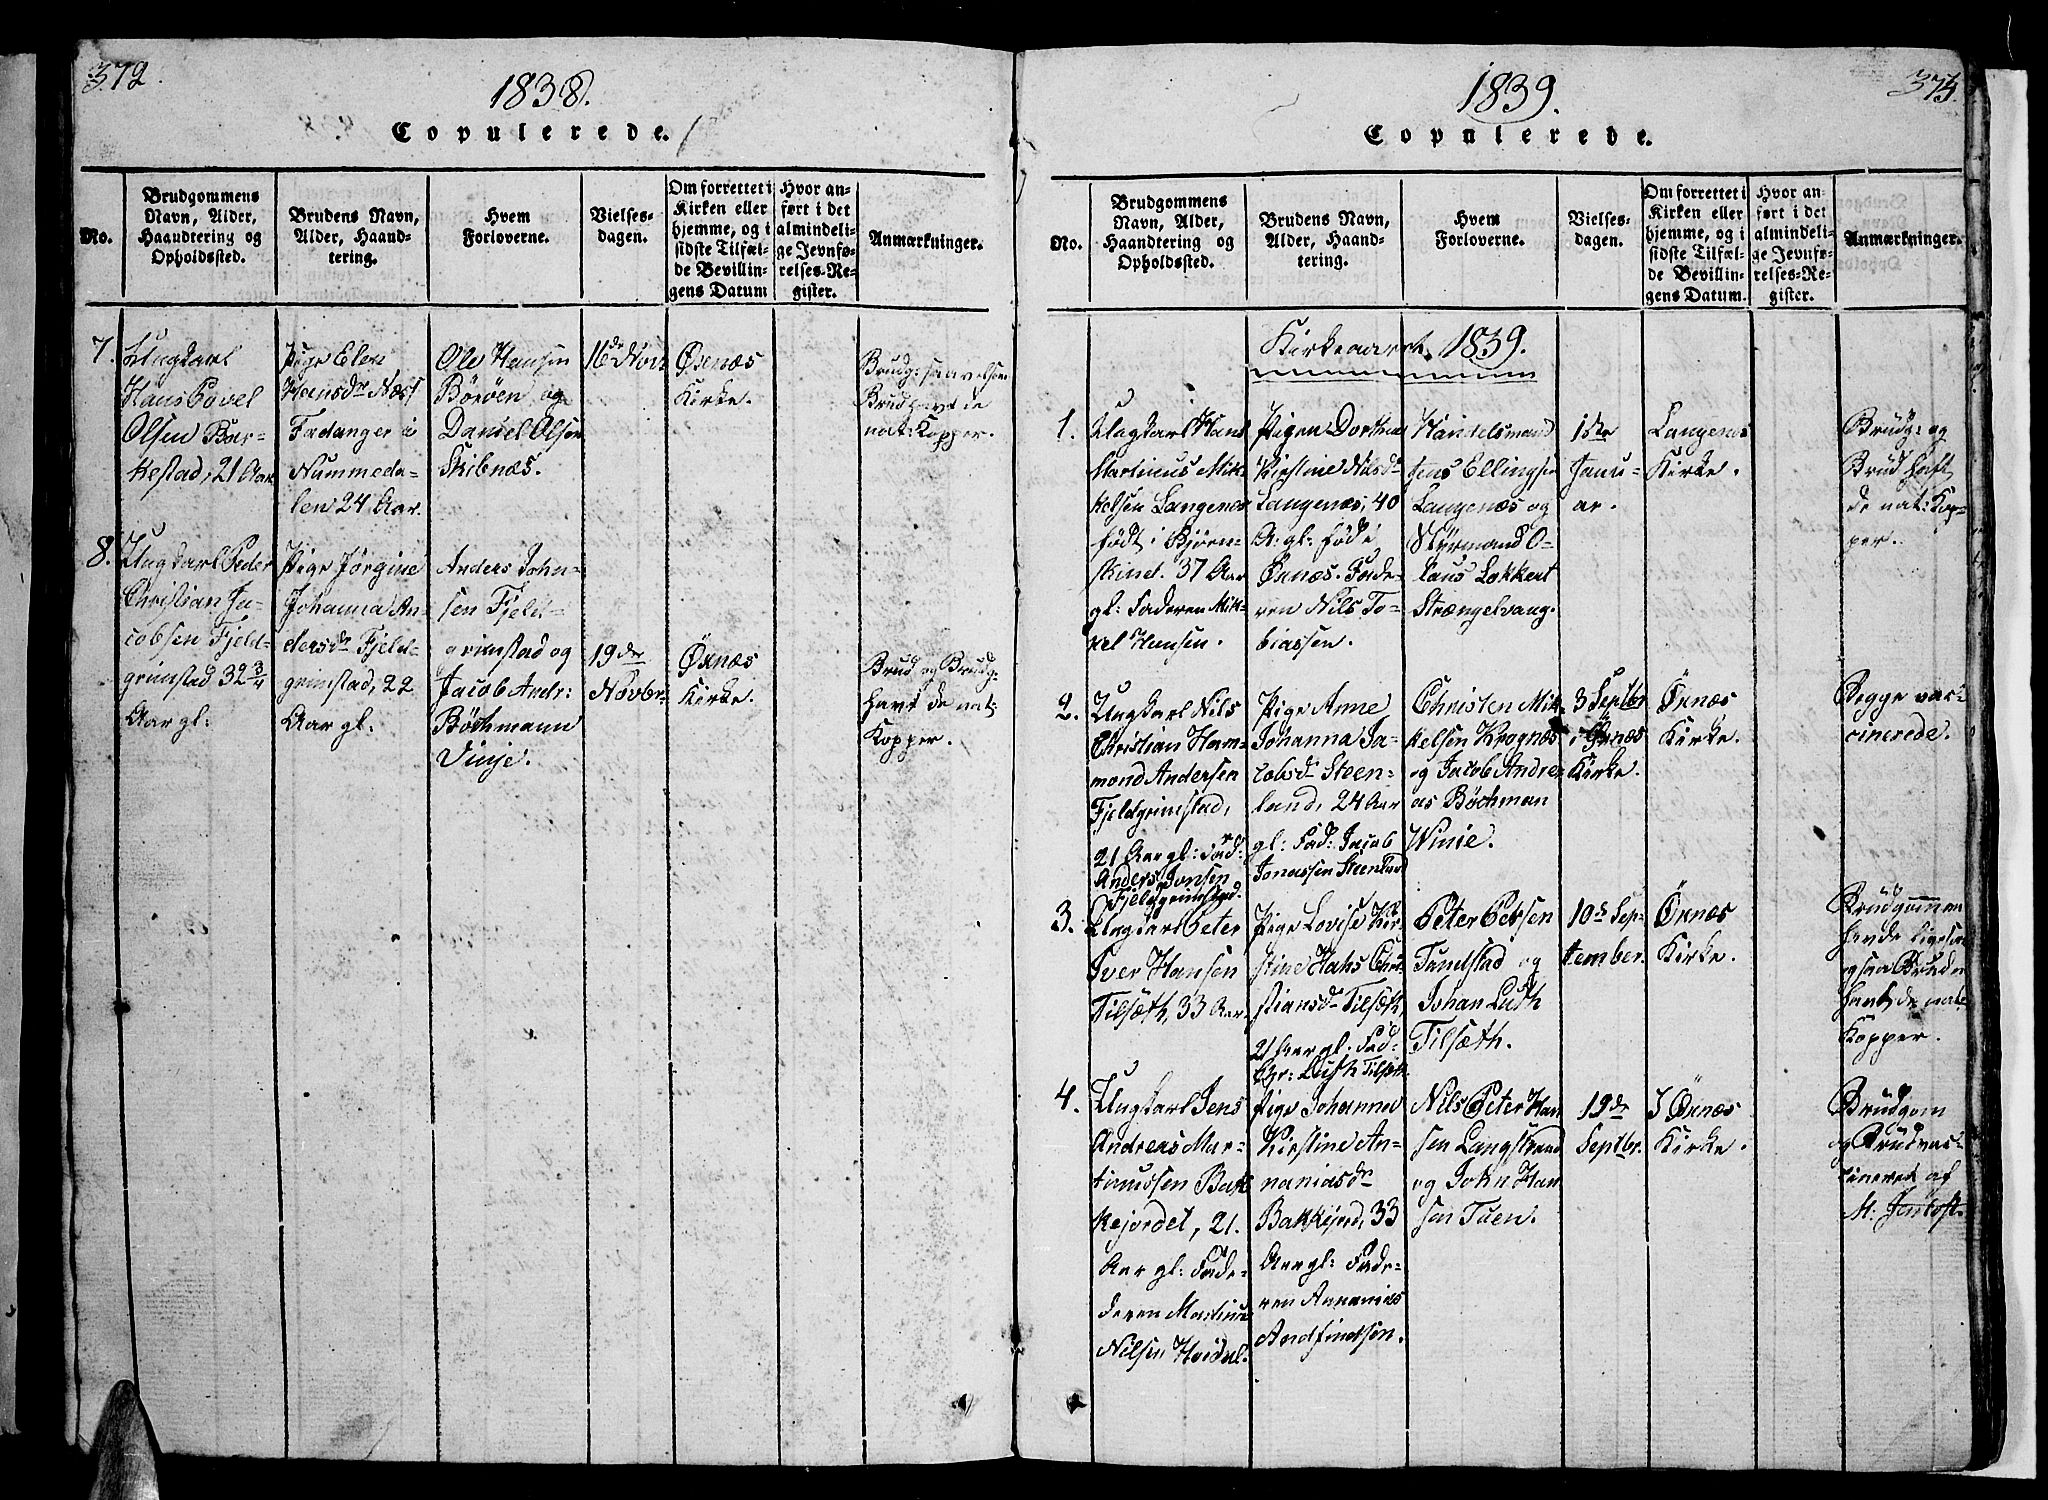 372.
1838.
Copulerede.
No.
Brudgommens
Navn, Alder,
Haandtering og
Opholdssted.
Brudens Navn,
Alder, Haand-
tering.
Hvem
Forloverne.
Vielses-
dagen.
Om forrettet i
Kirken eller
hjemme, og i
sidste Tilfæl-
de Bevillin-
gens Datum
Hvor an-
ført i det
almindeli-
ge Jevnfø-
relses-Re-
gister.
Anmærkninger.
7.
Ungkarl
Hans Povel
Olsen Bar-
kestad, 21 Aar
Pige Elen
Hansdr Næss
Fadanger i
Nummeda-
len 24 Aar.
Ole Hansen
Börøen og
Daniel Olsen
Skibnæs.
16de Novr
Öxnæs
Kirke.
Brudg: saavelsom
Brud havt de
nat: Kopper.
8.
Ungkarl Peder
Christian Ja-
cobsen Fjeld-
grimstad 32 3/4
Aar gl:
Pige Jörgine
Johanna An-
dersdr Fjeld-
grimstad, 22
Aar gl:
Anders John-
sen Fjeld-
grimstad og
Jacob Andr:
Böchmann
Vinje.
19de
Novbr
Öxnæs
Kirke.
Brud og Brudg:
havt de nat:
Kopper.
1839.
Copulerede.
No.
Brudgommens
Navn, Alder,
Haandtering og
Opholdssted.
Brudens Navn,
Alder, Haand-
tering.
Hvem
Forloverne.
Vielses-
dagen.
Om forrettet i
Kirken eller
hjemme, og i
sidste Tilfæl-
de Bevillin-
gens Datum.
Hvor an-
ført i det
almindeli-
ge Jevnfø-
relses-Re-
gister.
Anmærkninger.
Kirkeaaret 1839.
1.
Ungkarl Hans
Martinus Mik-
kelsen Langenæs
født i Bjørn-
skind. 37 Aar
gl: Faderen Mik-
kel Hansen.
Pigen Dorthea
Kirstine Nilsdr
Langenæs, 40
A: gl: føde i
Öxnæs. Fade-
ren Nils To-
biassen.
Handelsmand
Jens Ellingsen
Langenæs og
Styrmand O-
laus Lokkert
Strængelvaag.
1ste
Janu-
ar.
Langenæs
Kirke.
Brudg: og
Brud havt
de nat: Kop-
per.
2.
Ungkarl Nils
Christian Ham-
mond Andersen
Fjeldgrimstad,
21 Aar gl: Fad:
Anders Jonsen
Fjeldgrimstad.
Pige Anne
Johanna Ja-
cobsdr Steen-
land, 24 Aar
gl: Fad: Jacob
Jonassen Steenland
Christen Mik-
kelsen Krognæs
og Jacob Andre-
as Böchman
Winie.
3 Septbr
i Öxnæs
Kirke.
Öxnæs
Kirke.
Begge vac-
cinerede.
3.
Ungkarl Peter
Iver Hansen
Tilsæth, 33 Aar.
Pige Lovise Kir-
stine Hans Chri-
stiansdr Tilsæth,
21 Aar gl. Fad:
Chr: Luth Tilsæth.
Peter Petersen
Tunstad og
Johan Luth
Tilsæth.
10de Sep-
tember.
Öxnæs
Kirke.
Brudgommen
havde ligesom
ogsaa Bruden
havt de nat:
Kopper.
4.
Ungkarl Jens
Andreas Mar-
tinussen Bak-
kejordet, 21.
Aar gl: Fade-
deren Martinus
Nilsen
Pige Johanna
Kirstine An-
naniasdr
Bakkejord, 33
Aar gl: Fade-
ren Annanias
Andfindsen.
Nils Peter Han
sen Langstrand
og John Han
sen Tuen.
19de
Septbr.
I Öxnæs
Kirke.
Brudgom
og Brud vac-
cineret af